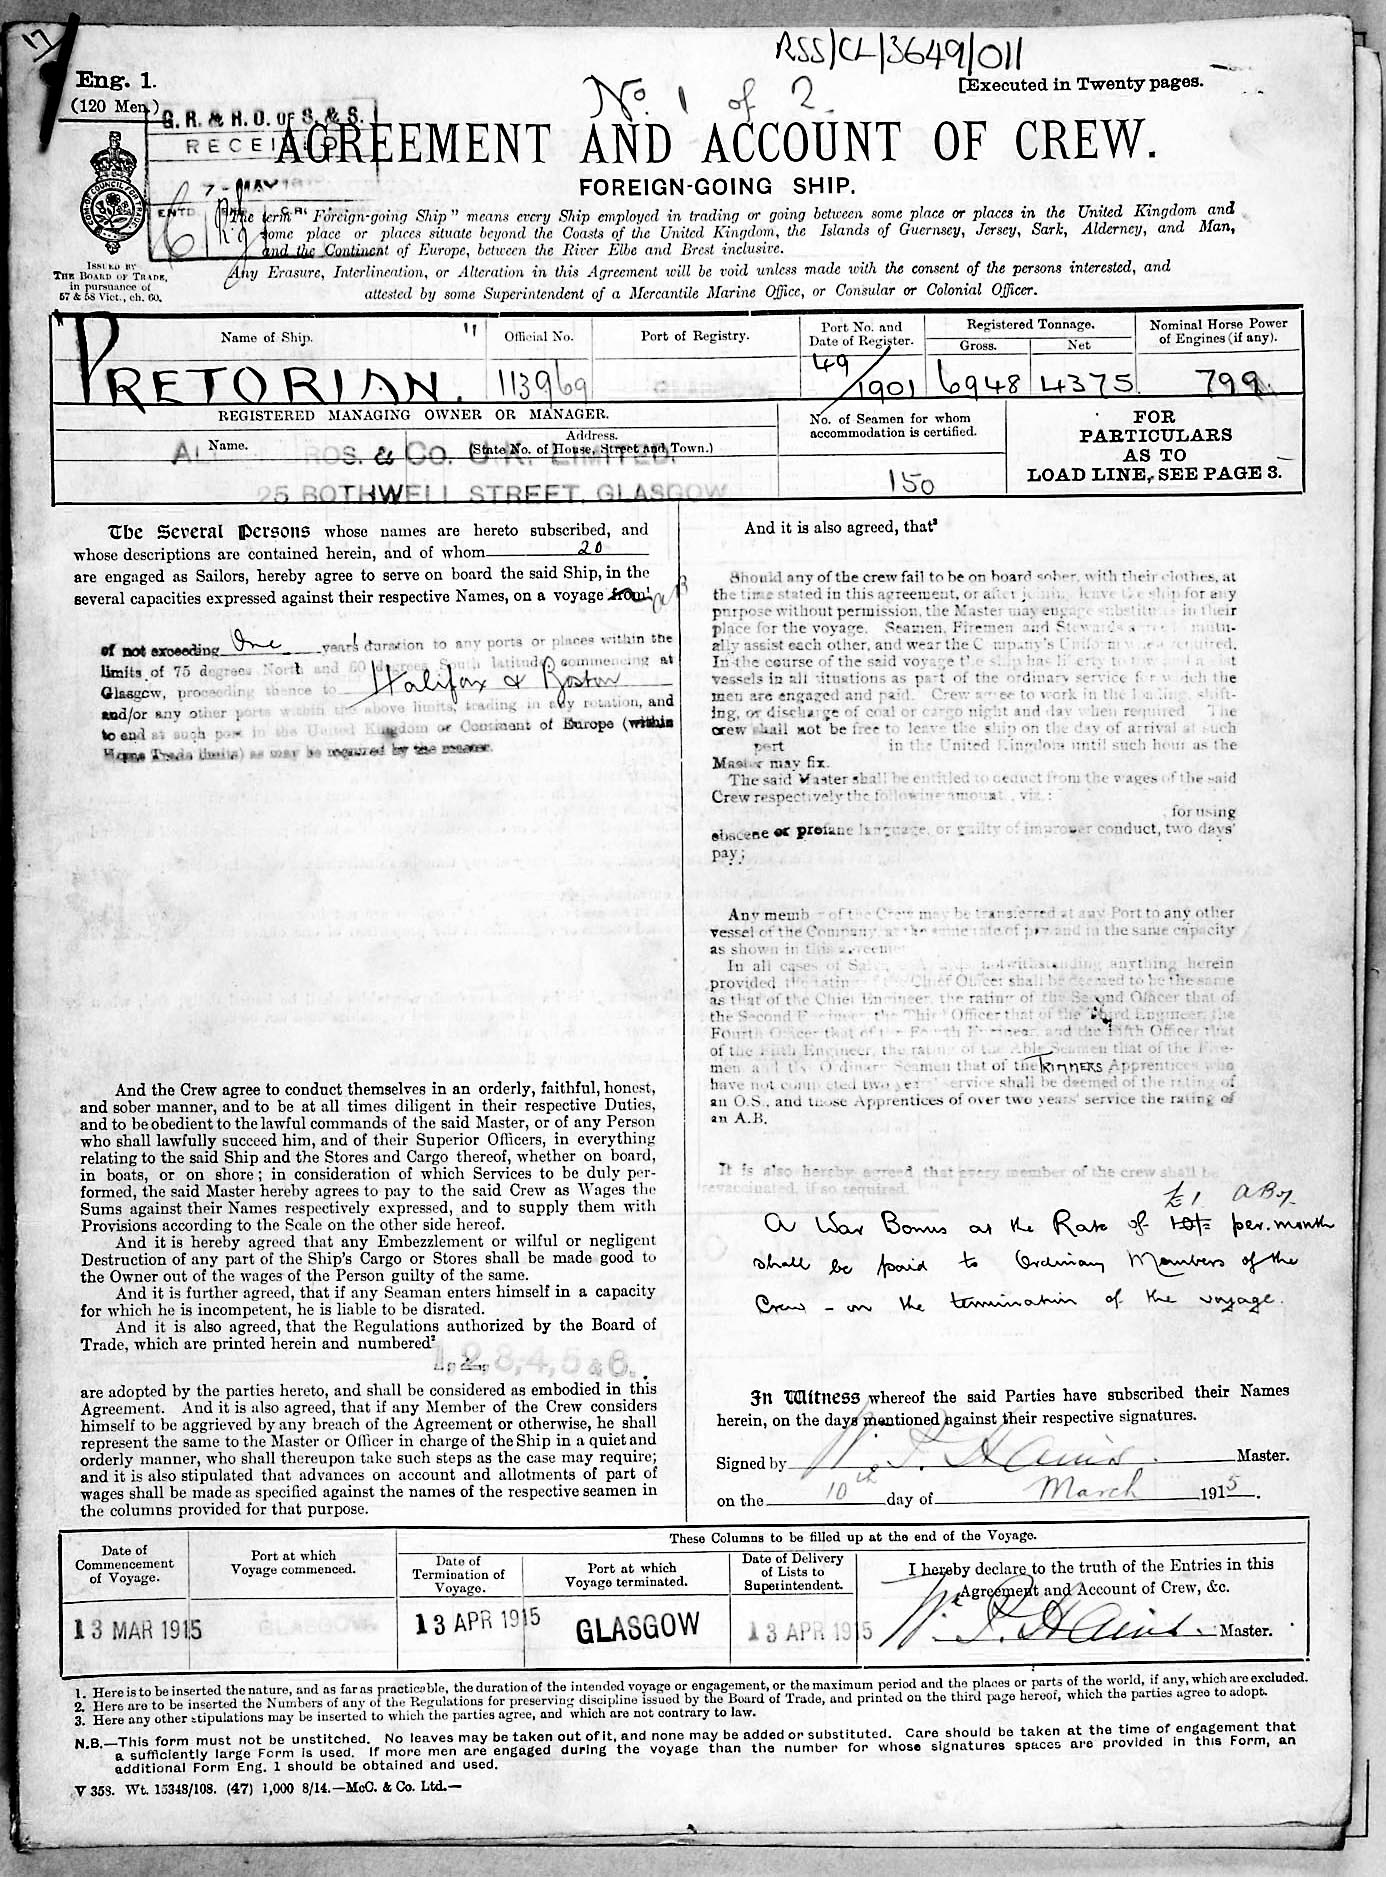 17
RSS/CL/3649/011
Eng. 1.
(120 Men.)
[Executed in Twenty pages.
No. 1 of 2
G. R. & R. O. OF S. & S.
RECEIVED
7 - MAY
AGREEMENT AND ACCOUNT OF CREW.
FOREIGN-GOING SHIP.
"The term "Foreign-going Ship" means every Ship employed in trading or going between some place or places in the United Kingdom and
some place or places situate beyond the Coasts of the United Kingdom, the Islands of Guernsey, Jersey, Sark, Alderney, and Man,
and the Continent of Europe, between the River Elbe and Brest inclusive.
Any Erasure, Interlineation, or Alteration in this Agreement will be void unless made with the consent of the persons interested, and
attested by some Superintendent of a Mercantile Marine Office, or Consular or Colonial Officer.
ISSUED BY
THE BOARD OF TRADE,
in pursuance of
57 & 58 Vict., ch. 60.
Name of Ship.
Official No.
Port of Registry.
Port No. and
Date of Register.
Registered Tonnage.
Gross.
Net
Nominal Horse Power
of Engines (if any).
"PRETORIAN."
113969
GLASGOW
49/1901
6948
4375
799.
REGISTERED MANAGING OWNER OR MANAGER.
Name.
Address.
(State No. of House, Street and Town.)
AL ROS. & CO. U.K. LIMITED.
25 BOTHWELL STREET, GLASGOW
No. of Seamen for whom
accommodation is certified.
150
FOR
PARTICULARS
AS TO
LOAD LINE, SEE PAGE 3.
The Several Persons whose names are hereto subscribed, and
whose descriptions are contained herein, and of whom 20
are engaged as Sailors, hereby agree to serve on board the said Ship, in the
several capacities expressed against their respective Names, on a voyage from
of not exceeding One years duration to any ports or places within the
limits of 75 degrees North and 60 degrees South latitude, commencing at
Glasgow, proceeding thence to Halifax & Boston
and/or any other ports within the above limits, trading in any rotation, and
to end at such port in the United Kingdom or Continent of Europe (within
Home Trade limits) as may be required by the master.
And the Crew agree to conduct themselves in an orderly, faithful, honest,
and sober manner, and to be at all times diligent in their respective Duties,
and to be obedient to the lawful commands of the said Master, or of any Person
who shall lawfully succeed him, and of their Superior Officers, in everything
relating to the said Ship and the Stores and Cargo thereof, whether on board,
in boats, or on shore; in consideration of which Services to be duly per-
formed, the said Master hereby agrees to pay to the said Crew as Wages the
Sums against their Names respectively expressed, and to supply them with
Provisions according to the Scale on the other side hereof.
And it is hereby agreed that any Embezzlement or wilful or negligent
Destruction of any part of the Ship's Cargo or Stores shall be made good to
the Owner out of the wages of the Person guilty of the same.
And it is further agreed, that if any Seaman enters himself in a capacity
for which he is incompetent, he is liable to be disrated.
And it is also agreed, that the Regulations authorized by the Board of
Trade, which are printed herein and numbered²
1,2,3,4,5 & 6.
are adopted by the parties hereto, and shall be considered as embodied in this
Agreement. And it is also agreed, that if any Member of the Crew considers
himself to be aggrieved by any breach of the Agreement or otherwise, he shall
represent the same to the Master or Officer in charge of the Ship in a quiet and
orderly manner, who shall thereupon take such steps as the case may require;
and it is also stipulated that advances on account and allotments of part of
wages shall be made as specified against the names of the respective seamen in
the columns provided for that purpose.
And it is also agreed, that³
Should any of the crew fail to be on board sober, with their clothes, at
the time stated in this agreement, or after joining leave the ship for any
purpose without permission, the Master may engage substitutes in their
place for the voyage. Seamen, Firemen and Stewards agree to mutu-
ally assist each other, and wear the Company's Uniform when required.
In the course of the said voyage the ship has liberty to tow and assist
vessels in all situations as part of the ordinary service for which the
men are engaged and paid. Crew agree to work in the loading, shift-
ing, or discharge of coal or cargo night and day when required The
crew shall not be free to leave the ship on the day of arrival at such
port in the United Kingdom until such hour as the
Master may fix.
The said Master shall be entitled to deduct from the wages of the said
Crew respectively the following amount, viz.:
for using
obscene or profane language, or guilty of improper conduct, two days'
pay;
Any member of the Crew may be transferred at any Port to any other
vessel of the Company, at the same rate of pay and in the same capacity
as shown in this agreement
In all cases of Salvage Awards notwithstanding anything herein
provided the rating of the Chief Officer shall be deemed to be the same
as that of the Chief Engineer, the rating of the Second Officer that of
the Second Engineer, the Third Officer that of the Third Engineer, the
Fourth Officer that of the Fourth Engineer, and the Fifth Officer that
of the Fifth Engineer, the rating of the Able Seamen that of the Fire-
men, and the Ordinary Seamen that of the TRIMMERS Apprentices who
have not completed two years' service shall be deemed of the rating of
an O.S., and those Apprentices of over two years' service the rating of
an A.B.
It is also hereby agreed that every member of the crew shall be
revaccinated, if so required.
£1
A War Bonus at the Rate of 10/- per. month
shall be paid to Ordinary Members of the
Crew - on the termination of the voyage.
In Witness whereof the said Parties have subscribed their Names
herein, on the days mentioned against their respective signatures.
Signed by W. P. Hains. Master.
on the 10th day of March 1915.
Date of
Commencement
of Voyage.
Port at which
Voyage commenced.
These Columns to be filled up at the end of the Voyage.
Date of
Termination of
Voyage.
Port at which
Voyage terminated.
Date of Delivery
of Lists to
Superintendent.
I hereby declare to the truth of the Entries in this
Agreement and Account of Crew, &c.
13 MAR 1915
GLASGOW.
13 APR 1915
GLASGOW
13 APR 1915
W. P. Hains. Master.
1. Here is to be inserted the nature, and as far as practicable, the duration of the intended voyage or engagement, or the maximum period and the places or parts of the world, if any, which are excluded.
2. Here are to be inserted the Numbers of any of the Regulations for preserving discipline issued by the Board of Trade, and printed on the third page hereof, which the parties agree to adopt.
3. Here any other stipulations may be inserted to which the parties agree, and which are not contrary to law.
N.B.—This form must not be unstitched. No leaves may be taken out of it, and none may be added or substituted. Care should be taken at the time of engagement that
a sufficiently large Form is used. If more men are engaged during the voyage than the number for whose signatures spaces are provided in this Form, an
additional Form Eng. 1 should be obtained and used.
V 358. Wt. 15348/108. (47) 1,000 8/14.—McC. & Co. Ltd.—